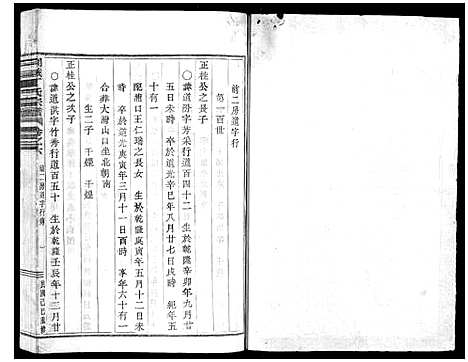 前二房道字行
第一百世
正桂公之長子
○謙道 字芳采行道百四十二 生於乾隆辛卯年九月廿
五日未時 卒於道光辛巳年八月廿七日戌時 紀年五
十有一
配澧口王仁瑞之長女 生於乾隆庚寅年五月十二日未
時 卒於道光庚寅年三月十一日酉時 享年六十有一
合葬大灣山口坐北朝南
生二子 于 于煌
正桂公之次子
○謙道洪字竹秀行道百五十 生於乾隆壬辰年十二月廿
前二房道字行
民國己巳